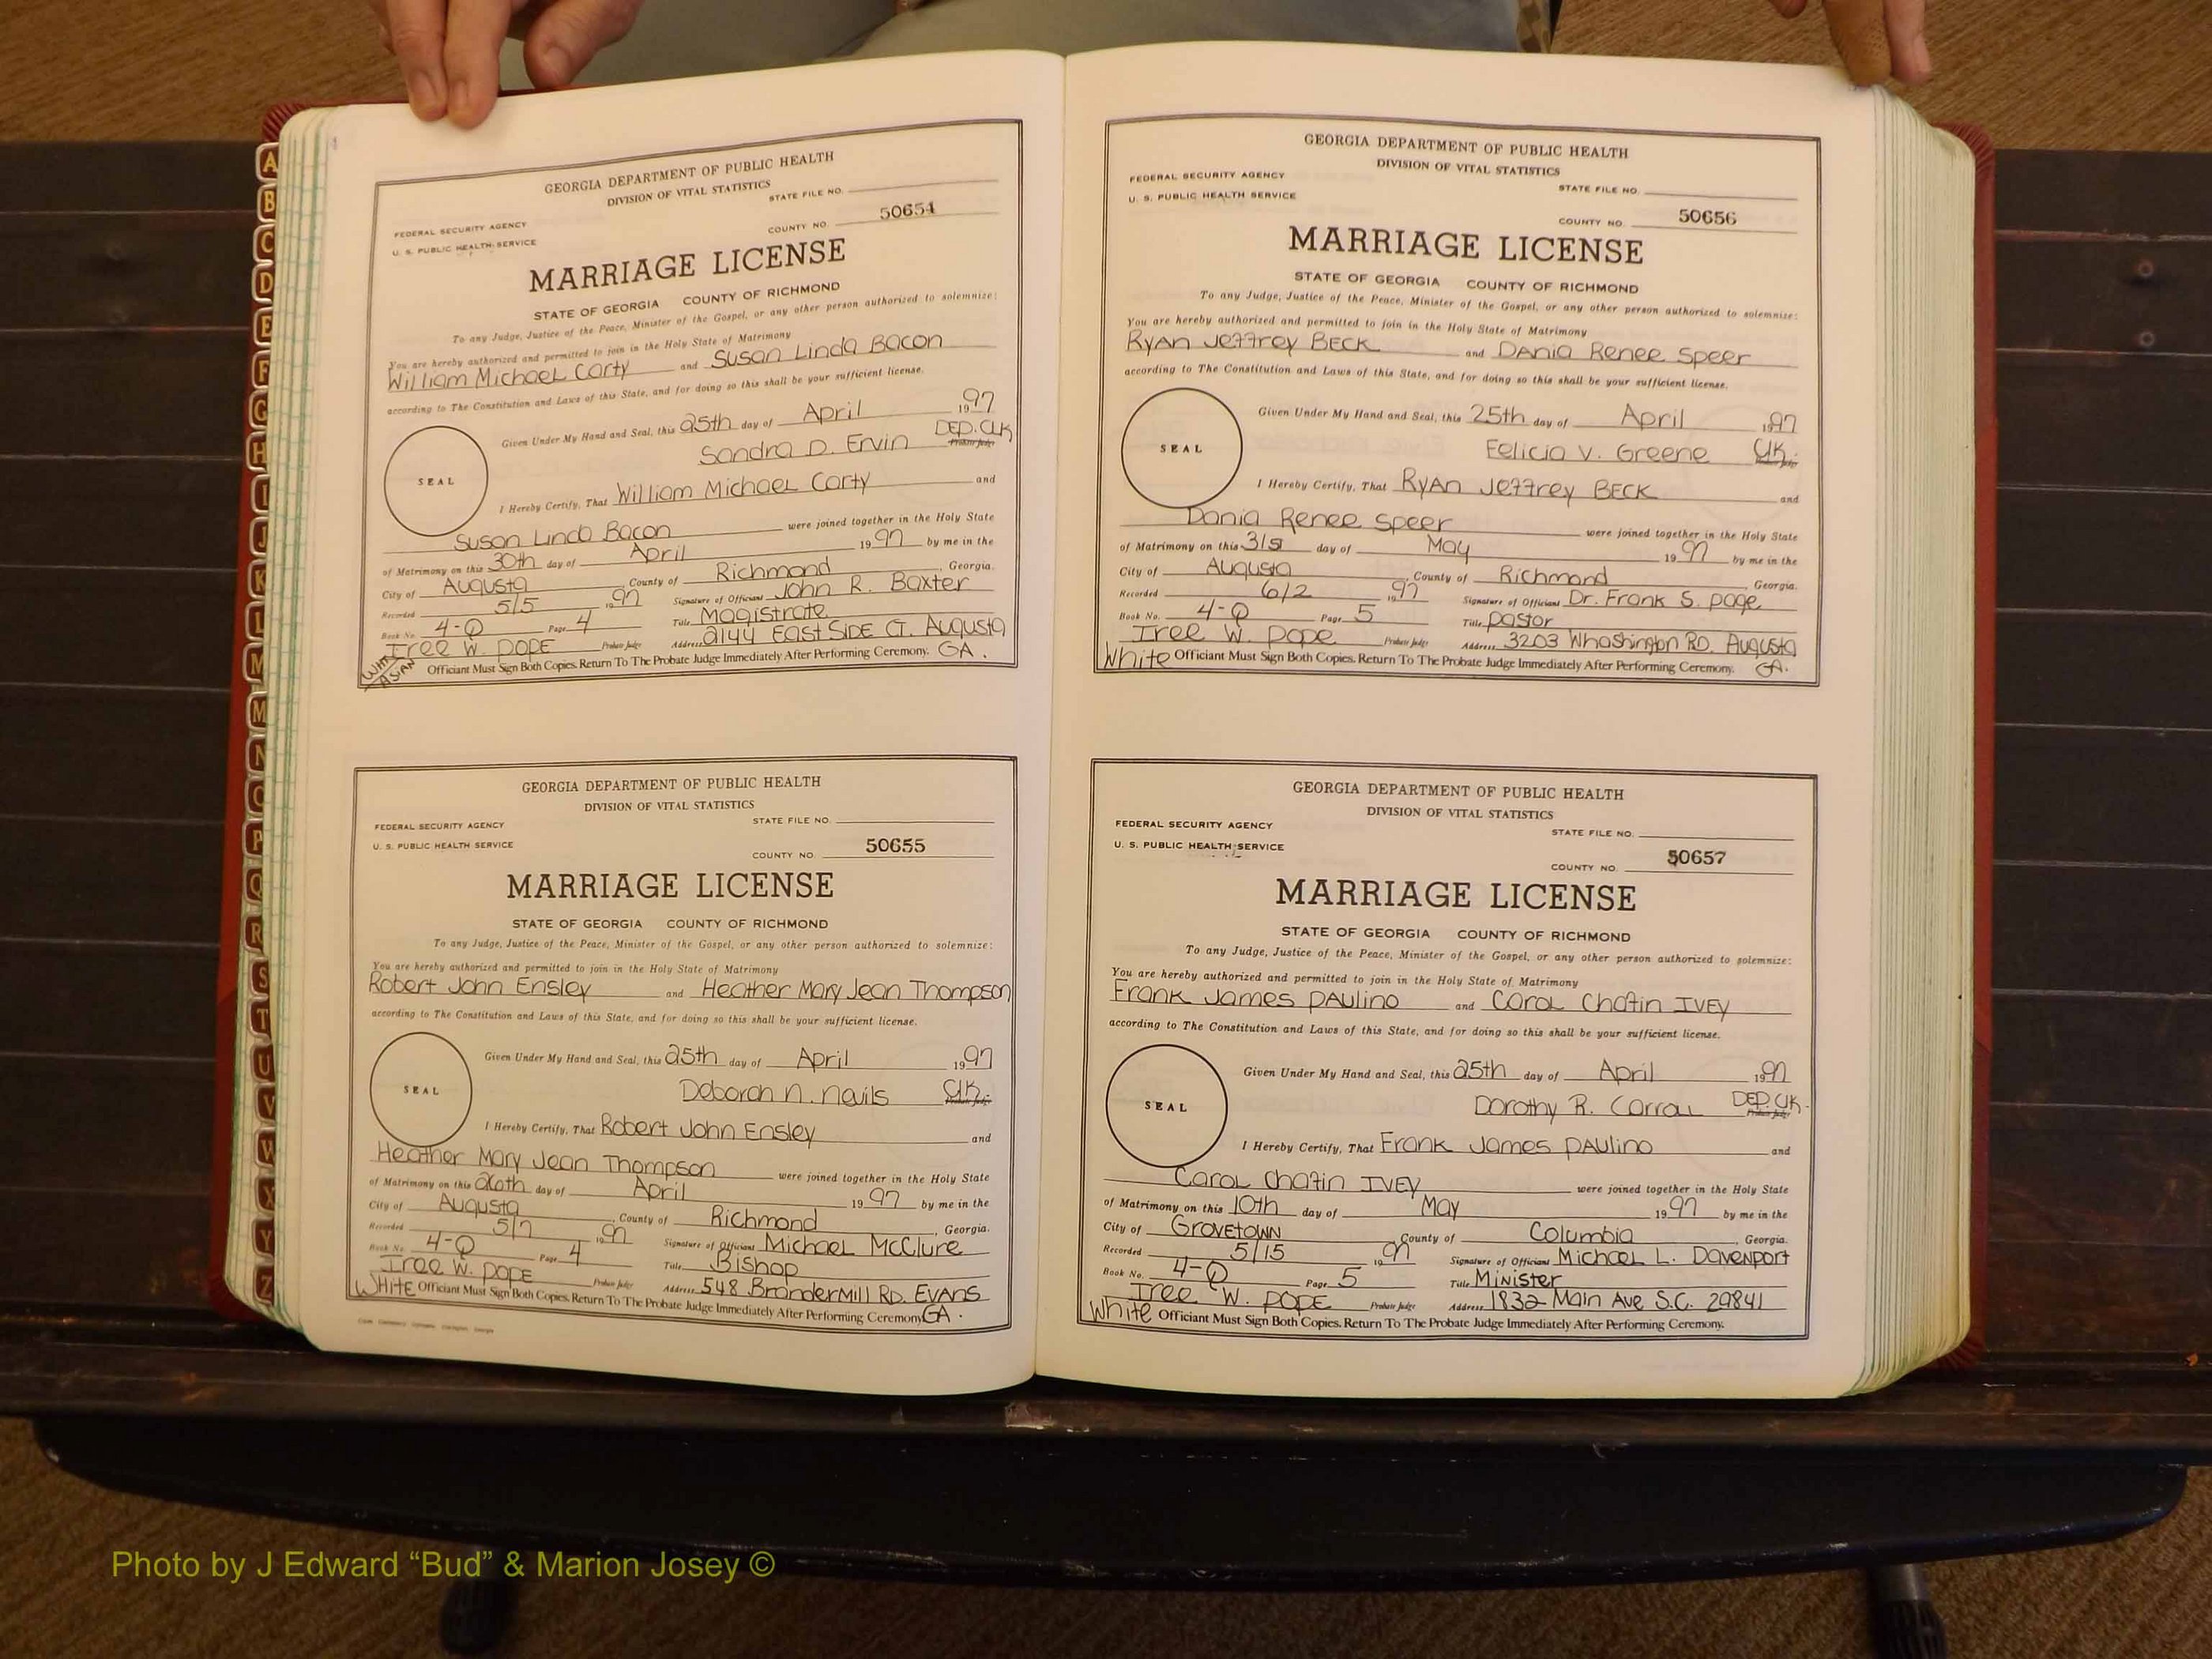 A
B
C
D
E
F
G
H
I
J
K
L
M
N
O
P
Q
R
S
T
U
V
W
X
Y
Z
GEORGIA DEPARTMENT OF PUBLIC HEALTH
DIVISION OF VITAL STATISTICS
STATE FILE NO.
FEDERAL SECURITY AGENCY
U. S. PUBLIC HEALTH SERVICE
COUNTY NO. 50654
MARRIAGE LICENSE
STATE OF GEORGIA COUNTY OF RICHMOND
To any Judge, Justice of the Peace, Minister of the Gospel, or any other person authorized to solemnize:
You are hereby authorized and permitted to join in the Holy State of Matrimony
William Michael Carty and Susan Linda Bacon
according to The Constitution and Laws of this State, and for doing so this shall be your sufficient license.
Given Under My Hand and Seal, this 25th day of April 1997
Sandra D. Ervin DEP. CLK
Probate Judge
SEAL
I Hereby Certify, That William Michael Carty and
Susan Linda Bacon were joined together in the Holy State
of Matrimony on this 30th day of April 1997 by me in the
City of Augusta County of Richmond, Georgia.
Recorded 5/5 1997 Signature of Officiant John R. Baxter
Book No. 4-Q Page 4 Title Magistrate
Iree W. POPE Probate Judge Address 2144 East SIDE CT. Augusta
White Asian Officiant Must Sign Both Copies. Return To The Probate Judge Immediately After Performing Ceremony. GA.
GEORGIA DEPARTMENT OF PUBLIC HEALTH
DIVISION OF VITAL STATISTICS
STATE FILE NO.
FEDERAL SECURITY AGENCY
U. S. PUBLIC HEALTH SERVICE
COUNTY NO. 50655
MARRIAGE LICENSE
STATE OF GEORGIA COUNTY OF RICHMOND
To any Judge, Justice of the Peace, Minister of the Gospel, or any other person authorized to solemnize:
You are hereby authorized and permitted to join in the Holy State of Matrimony
Robert John Ensley and Heather Mary Jean Thompson
according to The Constitution and Laws of this State, and for doing so this shall be your sufficient license.
Given Under My Hand and Seal, this 25th day of April 1997
Deborah N. Nevils Clk.
Probate Judge
SEAL
I Hereby Certify, That Robert John Ensley and
Heather Mary Jean Thompson were joined together in the Holy State
of Matrimony on this 26th day of April 1997 by me in the
City of Augusta, County of Richmond, Georgia.
Recorded 5/7 1997 Signature of Officiant Michael McClure
Book No. 4-Q Page 4 Title Bishop
Iree W. POPE Probate Judge Address 548 BranderMill RD. EVANS
WHITE Officiant Must Sign Both Copies. Return To The Probate Judge Immediately After Performing Ceremony GA.
GEORGIA DEPARTMENT OF PUBLIC HEALTH
DIVISION OF VITAL STATISTICS
FEDERAL SECURITY AGENCY
STATE FILE NO.
U. S. PUBLIC HEALTH SERVICE
COUNTY NO. 50656
MARRIAGE LICENSE
STATE OF GEORGIA COUNTY OF RICHMOND
To any Judge, Justice of the Peace, Minister of the Gospel, or any other person authorized to solemnize:
You are hereby authorized and permitted to join in the Holy State of Matrimony
Ryan Jeffrey BECK and DANIA Renee Speer
according to The Constitution and Laws of this State, and for doing so this shall be your sufficient license.
Given Under My Hand and Seal, this 25th day of April 1997
Felicia V. Greene Clk.
Probate Judge
SEAL
I Hereby Certify, That Ryan Jeffrey BECK and
Dania Renee Speer were joined together in the Holy State
of Matrimony on this 31st day of May 1997 by me in the
City of Augusta, County of Richmond, Georgia.
Recorded 6/2 1997 Signature of Officiant Dr. Frank S. Page
Book No. 4-Q Page 5 Title Pastor
Iree W. Pope Probate Judge Address 3203 Whashington RD. Augusta
White Officiant Must Sign Both Copies. Return To The Probate Judge Immediately After Performing Ceremony. GA.
GEORGIA DEPARTMENT OF PUBLIC HEALTH
DIVISION OF VITAL STATISTICS
FEDERAL SECURITY AGENCY
STATE FILE NO.
U. S. PUBLIC HEALTH SERVICE
COUNTY NO. 50657
MARRIAGE LICENSE
STATE OF GEORGIA COUNTY OF RICHMOND
To any Judge, Justice of the Peace, Minister of the Gospel, or any other person authorized to solemnize:
You are hereby authorized and permitted to join in the Holy State of Matrimony
Frank James PAULINO and Carol Chafin IVEY
according to The Constitution and Laws of this State, and for doing so this shall be your sufficient license.
Given Under My Hand and Seal, this 25th day of April 1997
Dorothy R. Carroll DEP. Clk.
Probate Judge
SEAL
I Hereby Certify, That Frank James PAULINO and
Carol Chafin IVEY were joined together in the Holy State
of Matrimony on this 10th day of May 1997 by me in the
City of Grovetown, County of Columbia, Georgia.
Recorded 5/15 1997 Signature of Officiant Michael L. Davenport
Book No. 4-Q Page 5 Title Minister
Iree W. POPE Probate Judge Address 1832 Main Ave S.C. 29841
White Officiant Must Sign Both Copies. Return To The Probate Judge Immediately After Performing Ceremony.
Photo by J Edward “Bud” & Marion Josey ©